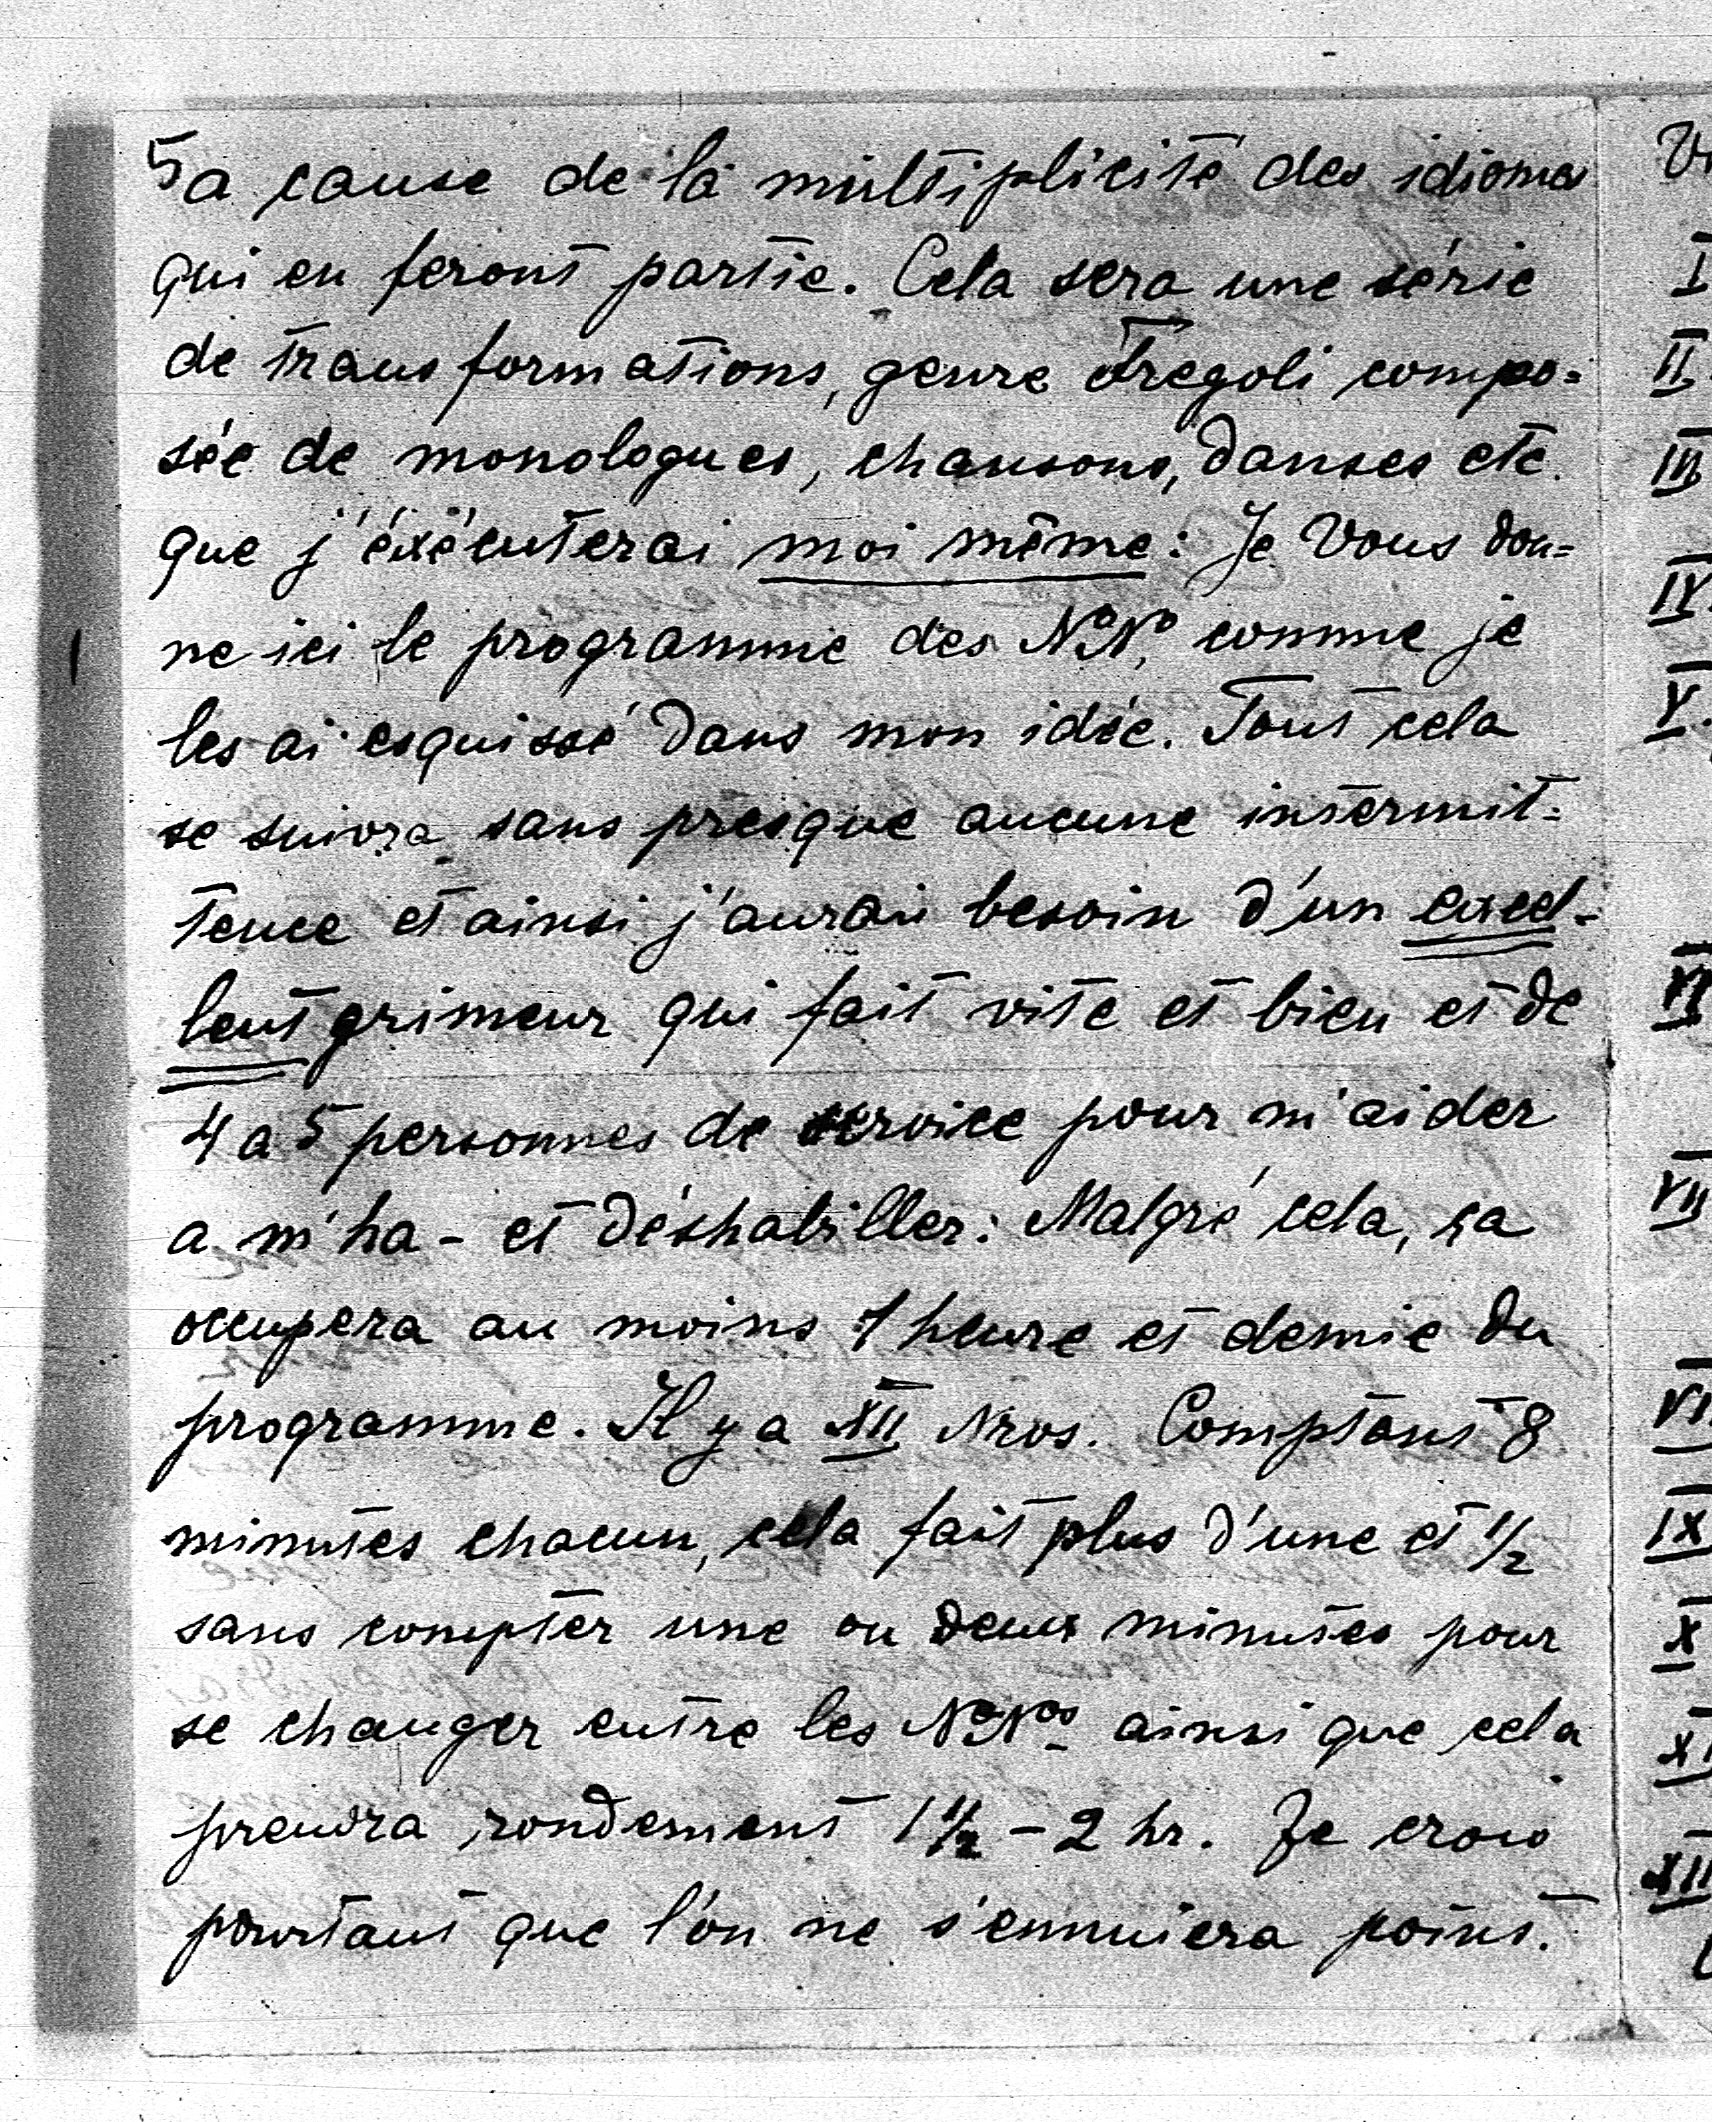 5 a cause de la multiplicité des idiomes
qui en feront partie. Cela sera une série
de transformations, genre Fregoli compo=
sée de monologues, chansons, danses etc.
que j'éxécuterai moi même: Je Vous don=
ne ici le programme des NoNo, comme je
les ai esquissé dans mon idée. Tout cela
se suivra sans presque aucune intermit=
tence et ainsi j'aurai besoin d'un excel-
lent grimeur qui fait vite et bien et de
4 a 5 personnes de service pour m'aider
a m'ha- et déshabiller: Malgré cela, ça
occupera au moins 1 heure et demie du
programme. Il y a XII Nros. Comptant 8
minutes chacun, cela fait plus d'une et 1/2
sans compter une ou deux minutes pour
se changer entre les NoNos ainsi que cela
prendra rondement 1 1/2 - 2 hr. Je crois
pourtant que l'on ne s'ennuiera point.
I
II
III
IV.
V.
VI
VII
IX
X
XI
XII